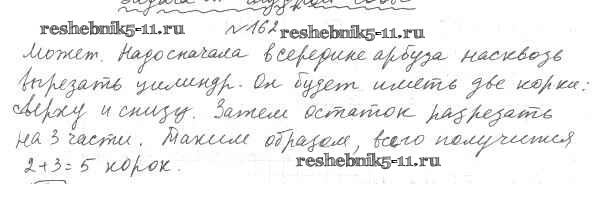 Задача от мудрой совы
reshebnik5-11.ru №162 reshebnik5-11.ru
Может. Надо сначала в середине арбуза насквозь
вырезать цилиндр. Он будет иметь две корки:
сверху и снизу. Затем остаток разрезать
на 3 части. Таким образом, всего получится
2+3=5 корок. reshebnik5-11.ru